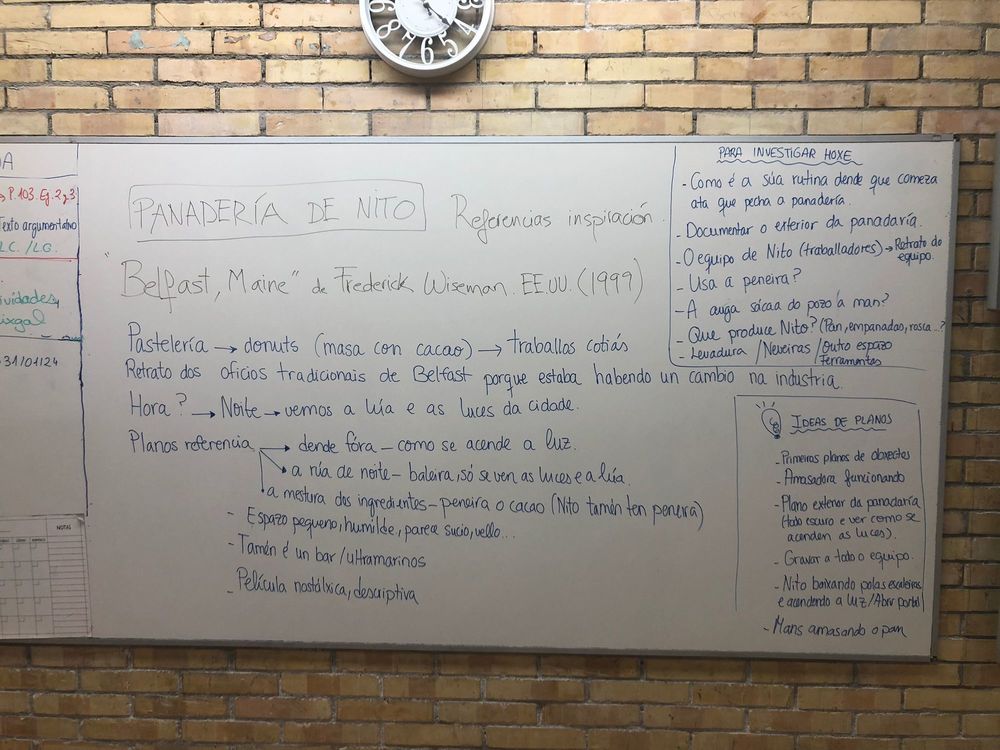 8 7 6 5 4
A
P.103. Ej. 2 y 3
Texto argumentativo
LC. /LG.
31/01/24
NOTAS
PANADERÍA DE NITO Referencias inspiración.
"Belfast, Maine" de Frederick Wiseman. EE.UU. (1999)
Pastelería → donuts (masa con cacao) → traballos cotiás
Retrato dos oficios tradicionais de Belfast porque estaba habendo un cambio na industria.
Hora? → Noite → vemos a lúa e as luces da cidade.
Planos referencia → dende fóra – como se acende a luz.
a rúa de noite – baleira, só se ven as luces e a lúa.
a mestura dos ingredientes – peneira o cacao (Nito tamén ten peneira)
- Espazo pequeno, humilde, parece sucio, vello...
- Tamén é un bar/ultramarinos
- Película nostálxica, descriptiva
PARA INVESTIGAR HOXE
- Como é a súa rutina dende que comeza
ata que pecha a panadería.
- Documentar o exterior da panadaría.
- O equipo de Nito (traballadores) → Retrato do
equipo.
- Usa a peneira?
- A auga sácaa do pozo á man?
- Que produce Nito? (Pan, empanadas, rosca...?
- Levadura /Neveiras /Outro espazo
Ferramentas
IDEAS DE PLANOS
- Primeiros planos de obxectos
- Amasadora funcionando
- Plano exterior da panadaría
(todo escuro e ver como se
acenden as luces).
- Gravar a todo o equipo.
- Nito baixando polas escaleiras
e acendendo a luz/Abrir portal
- Mans amasando o pan